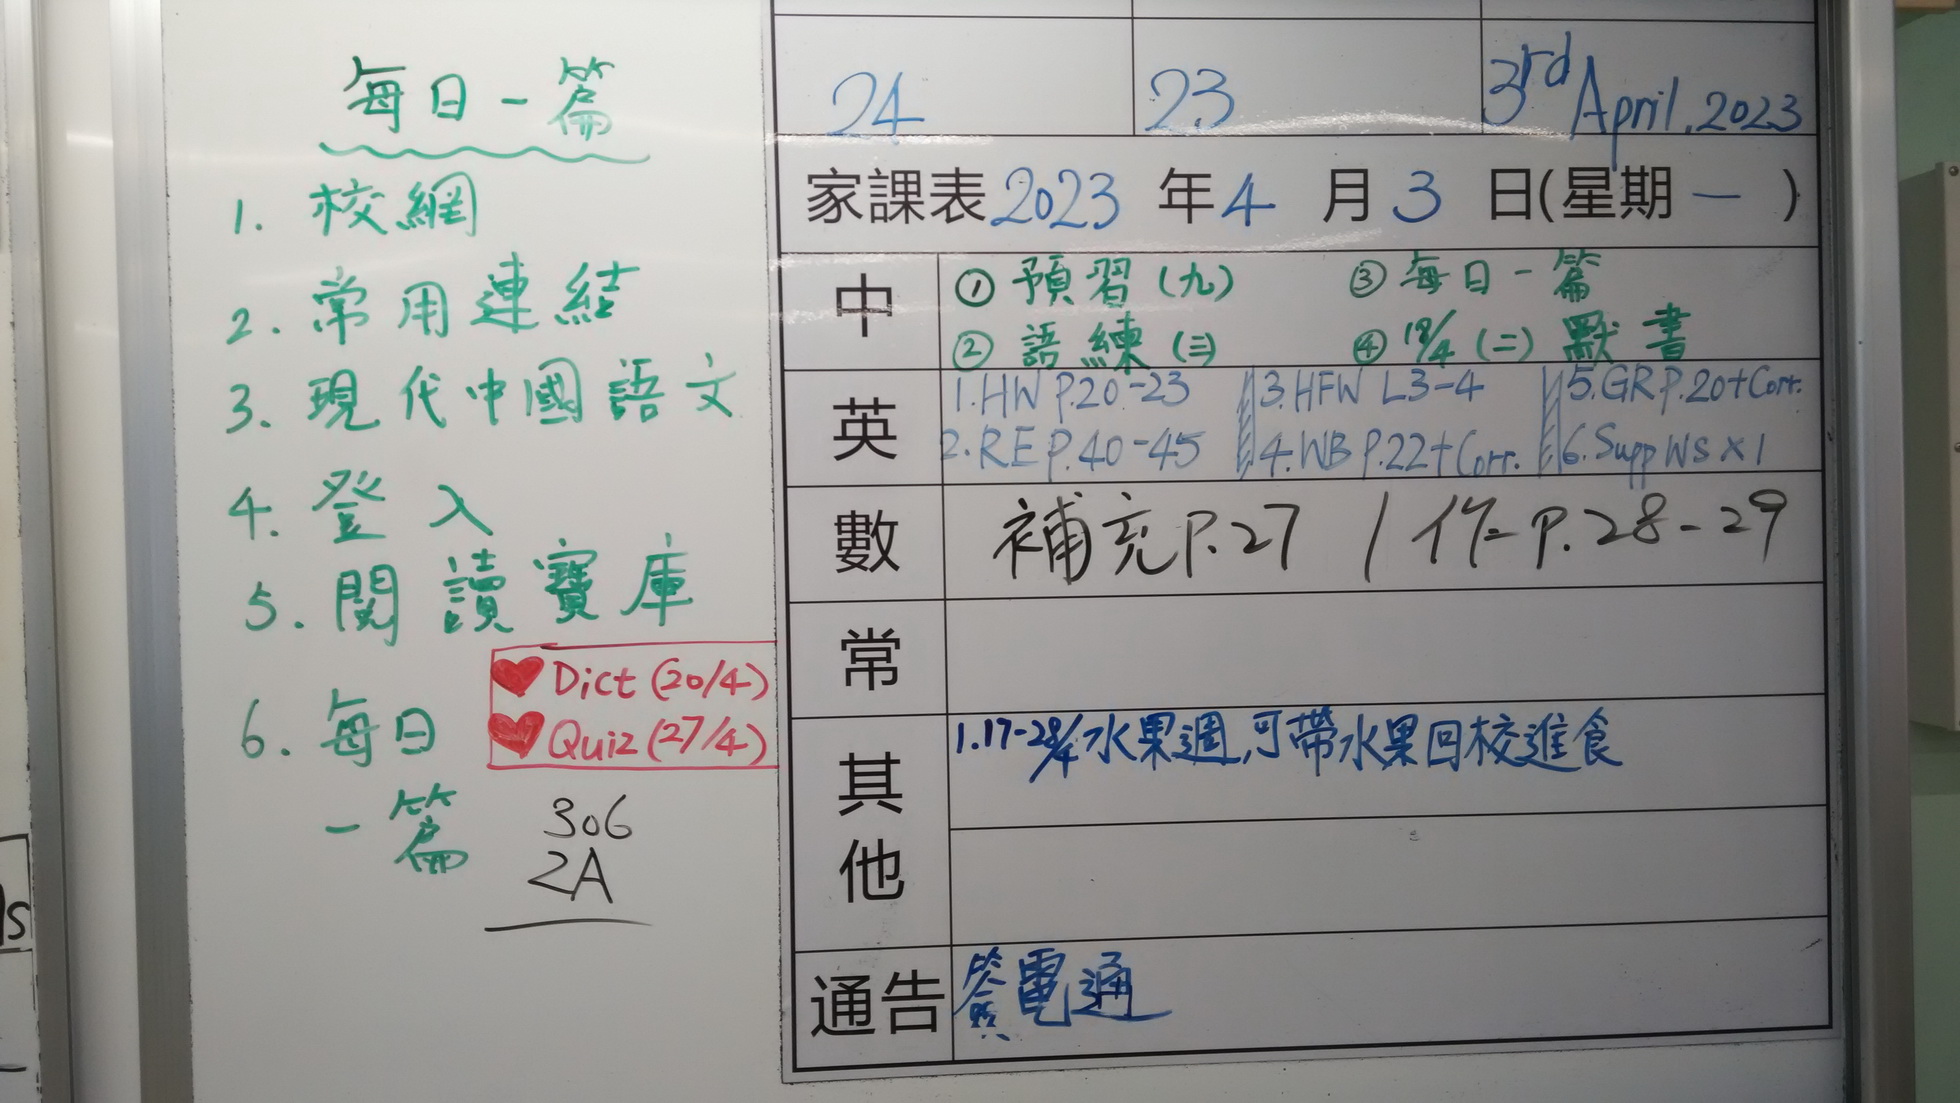 每日一篇
1. 校網
2. 常用連結
3. 現代中國語文
4. 登入
5. 閱讀寶庫
6. 每日
一篇
♥ Dict (20/4)
♥ Quiz (27/4)
306
2A
24 23 3rd April, 2023
家課表 2023 年 4 月 3 日(星期 一 )
中 ① 預習 (九) ③ 每日一篇
② 語練 (三) ④ 18/4 (二) 默書
英 1. HW P.20-23 3. HFW L3-4 5. GR P.20+Corr.
2. RE P.40-45 4. WB P.22+Corr. 6. Supp WS x 1
數 補充P.27 / 作P.28-29
常
其他 1. 17-28/4 水果週,可帶水果回校進食
通告 簽電通